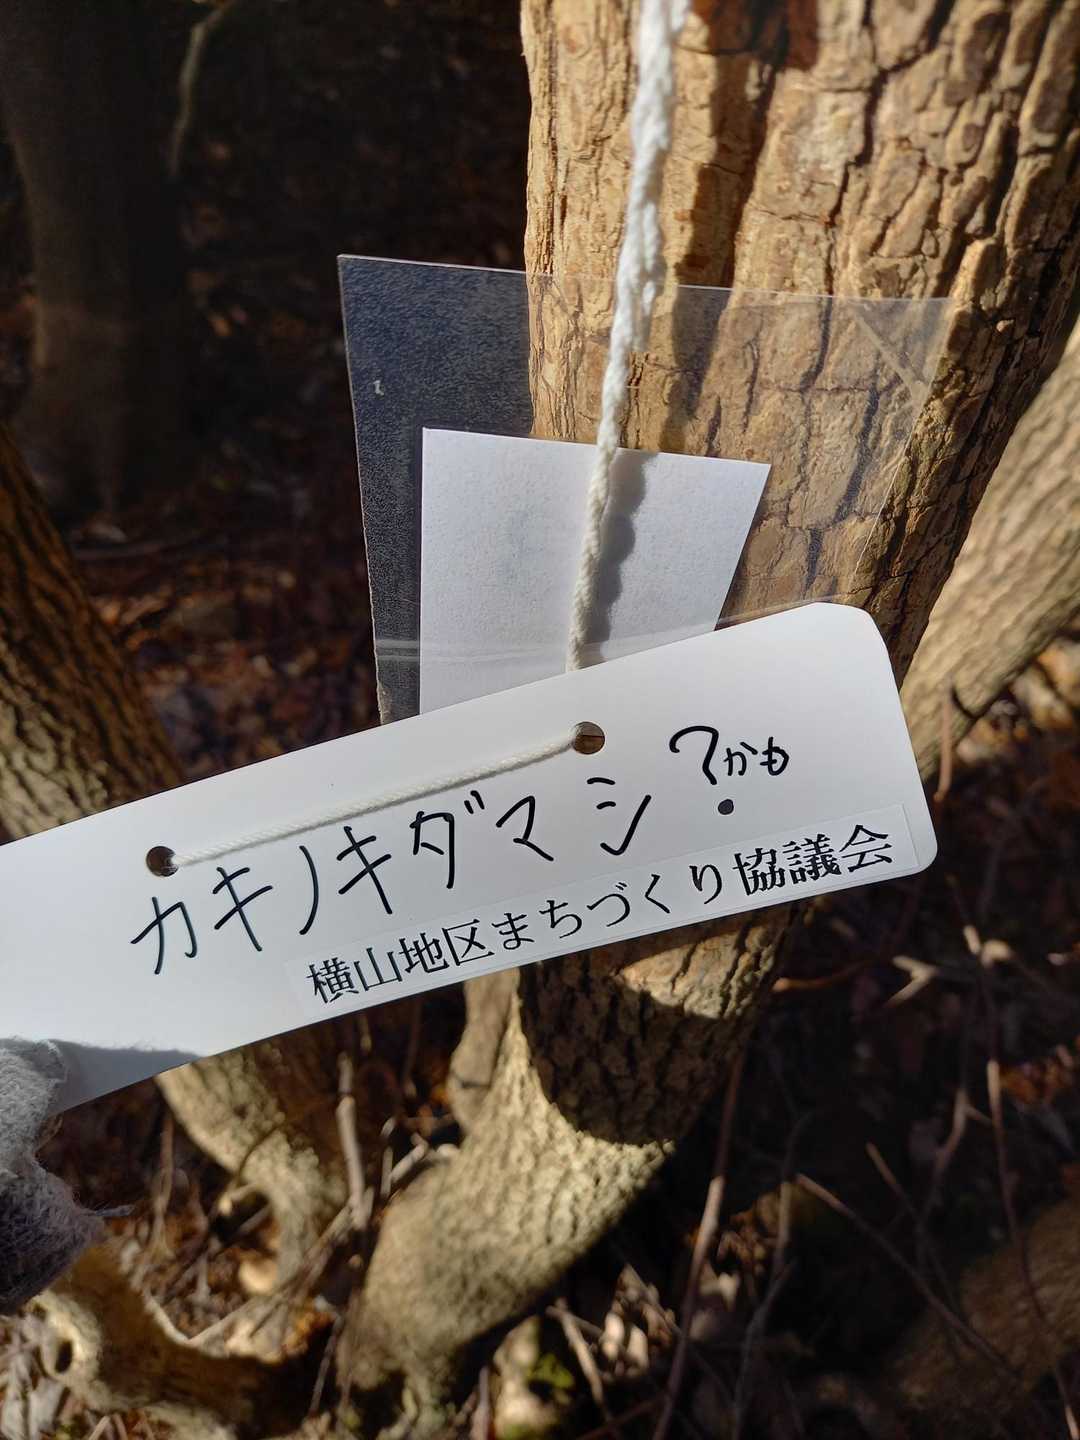 カキノキダマシ?かも
横山地区まちづくり協議会